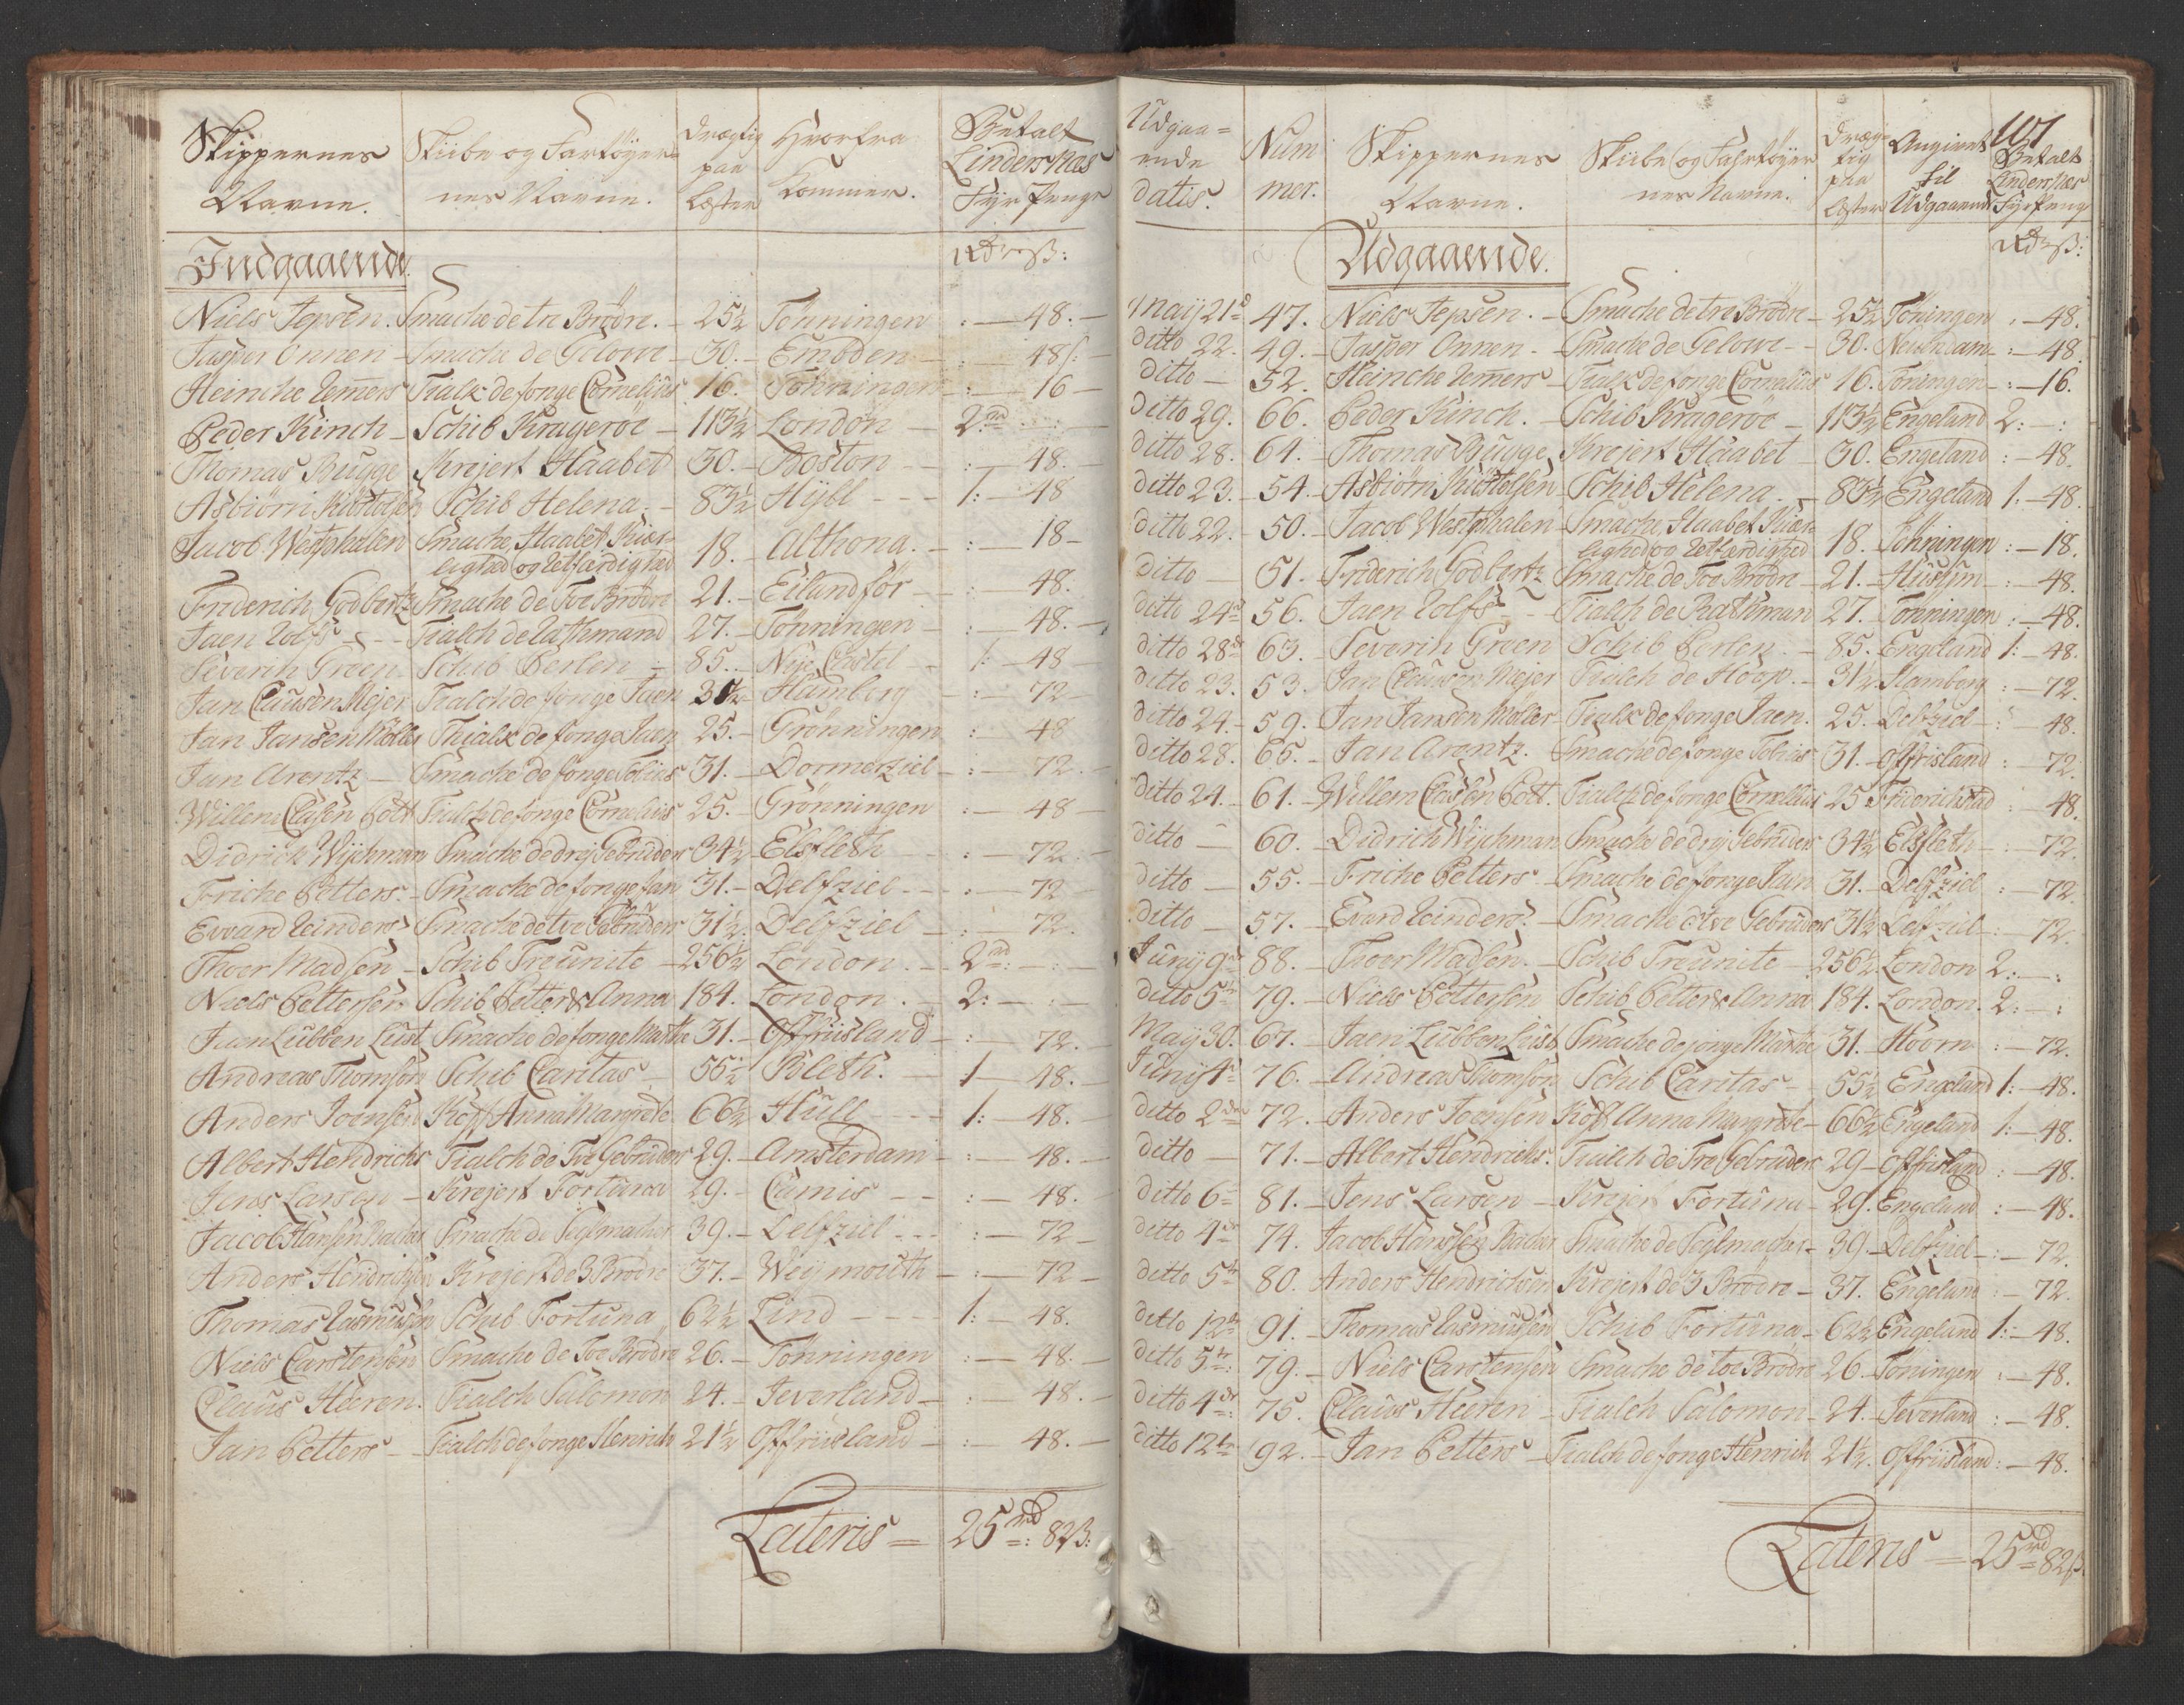 Skippernes Navne. | Skiibe og Fartöyer= nes Navne. | Drægtig paa Læster | Hvorfra Kommer. | Betalt LindersNæs Fyr Penge
Indgaaende. | Rdr ß:
Niels Jepsen. Smache de tre Brödre. - 25½ Tönningen : - 48. -
Jasper Onnen - Smache de Geloove - 30. - Embden - : - 48 ß: -
Heinche Remers Tialk de jonge Cornelius 16. Tönningen - : - 16 -
Peder Kinch - Schib Krageröe - 113½ London - 2rd : -
Thomas Bugge Krejert Haabet 30. - Boston - : - 48. -
Asbiörn Kiöstolsen Schib Helena. - 83½ Hÿll - - - 1: - 48
Jacob Westphalen Smache Haabet Kiær=
lighed og Retfærdighed 18. - Althona. - : - 18 -
Friderich Godbertz Smache de Toe Brödre 21. - Eilandför - : - 48.
Jaen Rolfs - - Tialch de Rathmand 27. - Tönningen - : - 48. -
Severin Green - Schib Perlen - 85. - Nÿe Castel - 1: - 48 -
Jan Clausen Mejer Tialch de jonge Jaen 31½ - Hamborg - : - 72 -
Jan Jansen Möller Thialk de jonge Jaen 25. - Grönningen : - 48
Jan Arentz - Smache de jonge Tobias 31. - Dormerziel - : - 72. -
Willem Clasen Bott Tialch de jonge Cornelius 25. - Grönningen : - 48 -
Didrich Wÿchman Smache de drej Gebrüder 34½ - Elsfleth : - 72. -
Friche Petters. - Smache de jonge Jan 31. - Delfziel - - : - 72
Evvard Reinders Smache de tve Gebrüders 31½. Delfziel - : - 72.
Thoer Madsen - Schib Treunite - 256½ London. - 2rd: - : -
Niels Pettersen Schib Petter & Anna 184. London. - 2: - : -
Jaen Lübben Lüst Smache de jonge Martha 31. - Offriisland - : - 72. -
Andreas Thomson Schib Caritas - 55½ Bleth. - 1 - 48. -
Anders Joensen Koff Anna Margrete 66½ Hüll - - - 1: - 48. -
Albert Hendrichs Tialch de Tve Gebrüders 29. - Amsterdam - : - 48. -
Jens Larsen - Krejert Fortuna 29. - Camis - - : - 48. -
Jacob Hansen Backer Smache de Seglmacher 39. - Delfziel - - - : - 72 -
Anders Hendrichsen Krejert de 3 Brödre 37. - Weÿmouth - : - 72 -
Thomas Rasmussen Schib Fortuna 62½ Lind - - - - 1: - 48.
Niels Carstensen Smache de Toe Brödre 26. - Tönningen : - 48. -
Claus Heeren. Tialch Salomon 24. - Jeverland - : - 48. -
Jan Petters - - Tialch de jonge Henrich 21½ Offriisland - : - 48. -
Lateris = 25rd: 82 ß:
107
Udgaa= ende datis. | Num mer. | Skippernes Navne. | Skiibe og Fahrtöyer nes Navne. | Dræg= tig paa Læster | Angivet til Udgaaende | Betalt LindersNæs Fyr Peng
Udgaaende. | Rdr ß:
Maij 21d 47. Niels Jepsen. - Smache de tre Brödre - 25½ Töningen : - 48.
Ditto 22. 49. - Jasper Onnen - Smache de Gelowe - - 30. Neuendam - : - 48.
Ditto - 52. Heinche Remers - Tialk de jonge Cornelius 16. Töningen - : - 16.
Ditto 29. 66. Peder Kinch. - Schib Krageröe - 113½ Engeland 2: - :
Ditto 28. 64. - Thomas Bugge Krejert Haabet 30. Engeland : - 48.
Ditto 23. - 54. - Asbiörn Kiöstolsen Schib Helena. - 83½ Engeland 1. - 48.
Ditto 22. - 50. - Jacob Westphalen - Smache Haabet Kiær=
lighed og Retfærdighed 18. Tönningen : - 18.
Ditto - 51. - Friderich Godbertz Smache de Toe Brödre - 21. - Hüsum - : - 48.
Ditto 24d 56. Jaen Rolfs - Tialch de Rathman 27. Tönningen : - 48.
Ditto 28de 63. - Severin Green Schib Perlen. - 85. Engeland 1: - 48.
Ditto 23. 53. Jan Clausen Mejer Tialch de Hoop. - 31½. Hamborg : - 72.
Ditto 24. - 59. Jan Jansen Möller - Tialk de jonge Jaen. 25. Delfziel - : 48.
Ditto 28. 65. - Jan Arentz. Smache de jonge Tobias 31. - Offriisland : - 72.
Ditto 24. - 61. - Willem Clasen Bott. Tialch de jonge Cornelius 25 Friderichstad : 48.
Ditto - 60. - Didrich Wÿchman Smache de drej Gebrüders 34½ Elsfleth - : - 72.
Ditto - 55. - Friche Petters - Smache de jonge Jaen 31. - Delfziel : - 72.
Ditto - 57. - Evard Reinders. - Smache d' tve Gebrüders 31½ Delfziel - : - 72.
Junÿ 9de 88. - Thoer Madsen. - Schib Treunite - 256½. London 2: - :
Ditto 5te 79. - Niels Pettersen Schib Petter & Anna 184. London. 2: - :
Maÿ 30. 67. - Jaen Lübben Leist Smache de jonge Martha 31. Hoorn : - 72.
Junÿ 4de 76. - Andreas Thomson Schib Caritas - 55½ Engeland 1: - 48.
Ditto 2den 72. - Anders Joensen Koff Anna Margrete - 66½ Engeland 1: - 48.
Ditto - 71. - Albert Hendrichs. Tialch de Tre Gebrüders 29 - Offriisland : - 48.
Ditto 6te 81. - Jens Larsen - Krejert Fortüna - 29. Engeland : - 48.
Ditto 4de 74. Jacob Hansen Backer Smache de Segelmacher - 39 - Delfziel - : - 72.
Ditto 5te 80. Anders Hendrichsen Krejert de 3 Brödre - 37. Engeland : - 72.
Ditto 12te 91. - Thomas Rasmussen Schib Fortüna - 62½ Engeland 1: - 48.
Ditto 5te: 79. - Niels Carstensen Smache de toe Brödre 26. - Töningen : - 48.
Ditto 4de: 75. Claus Heeren - Tialch Salomon - 24. - Jeverland : - 48.
Ditto 12te 92. - Jan Petters - Tialch de jonge Henrich 21½. Offriisland : - 48.
Lateris = 25rd 82 ß.